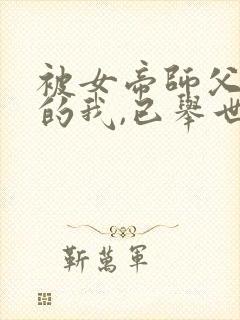 被女帝師父
的我,已舉世
靳萬軍